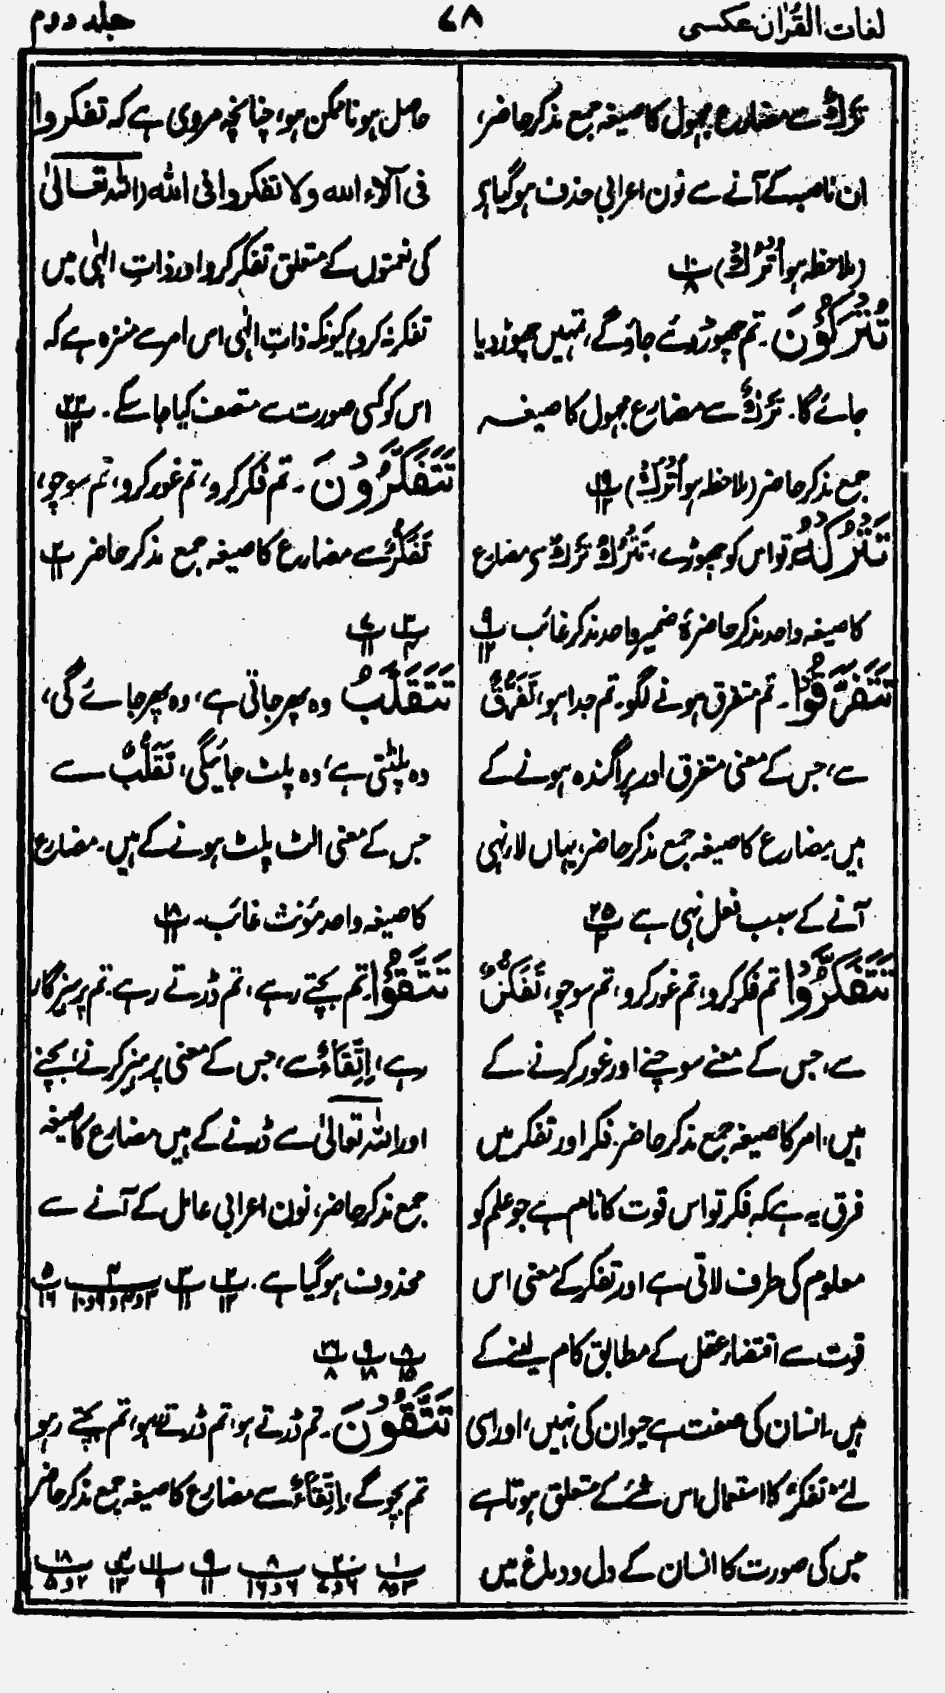 لغات القرآن عکسی
۷۸
جلد دوم
تَرْكٌ سے مضارع مجہول کا صیغہ جمع مذکر حاضر،
ان ناصبہ کے آنے سے نون اعرابی حذف ہوگیا ہے
(ملاحظہ ہو اُتْرُكْ) پ۱۰ ۸
تُتْرَكُوْنَ۔ تم چھوڑ دئے جاؤ گے، تمہیں چھوڑ دیا
جائے گا۔ تَرْكٌ سے مضارع مجہول کا صیغہ
جمع مذکر حاضر (ملاحظہ ہو اُتْرُكْ) پ۱۹ ۱۲
تَتْرُكْهُ تو اس کو چھوڑے، تَتْرُكْ تَرْكٌ سے مضارع
کا صیغہ واحد مذکر حاضر ہٗ ضمیر واحد مذکر غائب پ۹ ۱۲
تَتَفَرَّقُوْا۔ تم متفرق ہونے لگو۔ تم جدا ہو، تَفَرُّقٌ
سے، جس کے معنی متفرق اور پراگندہ ہونے کے
ہیں۔ مضارع کا صیغہ جمع مذکر حاضر، یہاں لا نہی
آنے کے سبب فعل نہی ہے پ۲۵ ۳
تَتَفَكَّرُوْا تم فکر کرو، تم غور کرو، تم سوچو، تَفَكُّرٌ
سے، جس کے معنے سوچنے اور غور کرنے کے
ہیں، امر کا صیغہ جمع مذکر حاضر۔ فکر اور تفکر میں
فرق یہ ہے کہ فکر تو اس قوت کا نام ہے جو علم کو
معلوم کی طرف لاتی ہے اور تفکر کے معنی اس
قوت سے اقتضاء عقل کے مطابق کام لینے کے
ہیں۔ انسان کی صفت ہے حیوان کی نہیں، اور اسی
لئے تفکر کا استعمال اس شے کے متعلق ہوتا ہے
جس کی صورت کا انسان کے دل و دماغ میں
حاصل ہونا ممکن ہو، چنانچہ مروی ہے کہ تفکروا
فی آلاء اللہ ولا تفکروا فی اللہ (اللہ تعالیٰ
کی نعمتوں کے متعلق تفکر کرو اور ذاتِ الٰہی میں
تفکر نہ کرو) کیونکہ ذاتِ الٰہی اس امر سے منزہ ہے کہ
اس کو کسی صورت سے متصف کیا جا سکے۔ پ۲۲ ۱۲
تَتَفَكَّرُوْنَ۔ تم فکر کرو، تم غور کرو، تم سوچو،
تَفَكُّرٌ سے مضارع کا صیغہ جمع مذکر حاضر پ۲ ۱۱
پ۳ ۴ پ۷ ۱۱
تَتَقَلَّبُ وہ پھر جاتی ہے، وہ پھر جائے گی،
وہ پلٹتی ہے، وہ پلٹ جائیگی، تَقَلُّبٌ سے
جس کے معنی الٹ پلٹ ہونے کے ہیں۔ مضارع
کا صیغہ واحد مؤنث غائب۔ پ۱۸ ۱۱
تَتَّقُوْا تم بچتے رہے، تم ڈرتے رہے۔ تم پرہیزگار
رہے، اِتِّقَاءٌ سے، جس کے معنی پرہیز کرنے، بچنے
اور اللہ تعالیٰ سے ڈرنے کے ہیں مضارع کا صیغہ
جمع مذکر حاضر، نون اعرابی عامل کے آنے سے
محذوف ہوگیا ہے۔ پ۲ ۱۲ پ۳ ۱۱ پ۴ ۳و۴و۹و۱۰ پ۵ ۱۶
پ۸ ۱۵ پ۹ ۱۸ پ۲۶ ۸
تَتَّقُوْنَ۔ تم ڈرتے ہو، تم ڈرتے ہو، تم بچتے رہو
تم بچو گے، اِتِّقَاءٌ سے مضارع کا صیغہ جمع مذکر حاضر
پ۱ ۳و۸ پ۲ ۶و۷ پ۸ ۶و۱۶ پ۹ ۱۱ پ۱۱ ۹ پ ۱۲ پ۱۸ ۲و۵